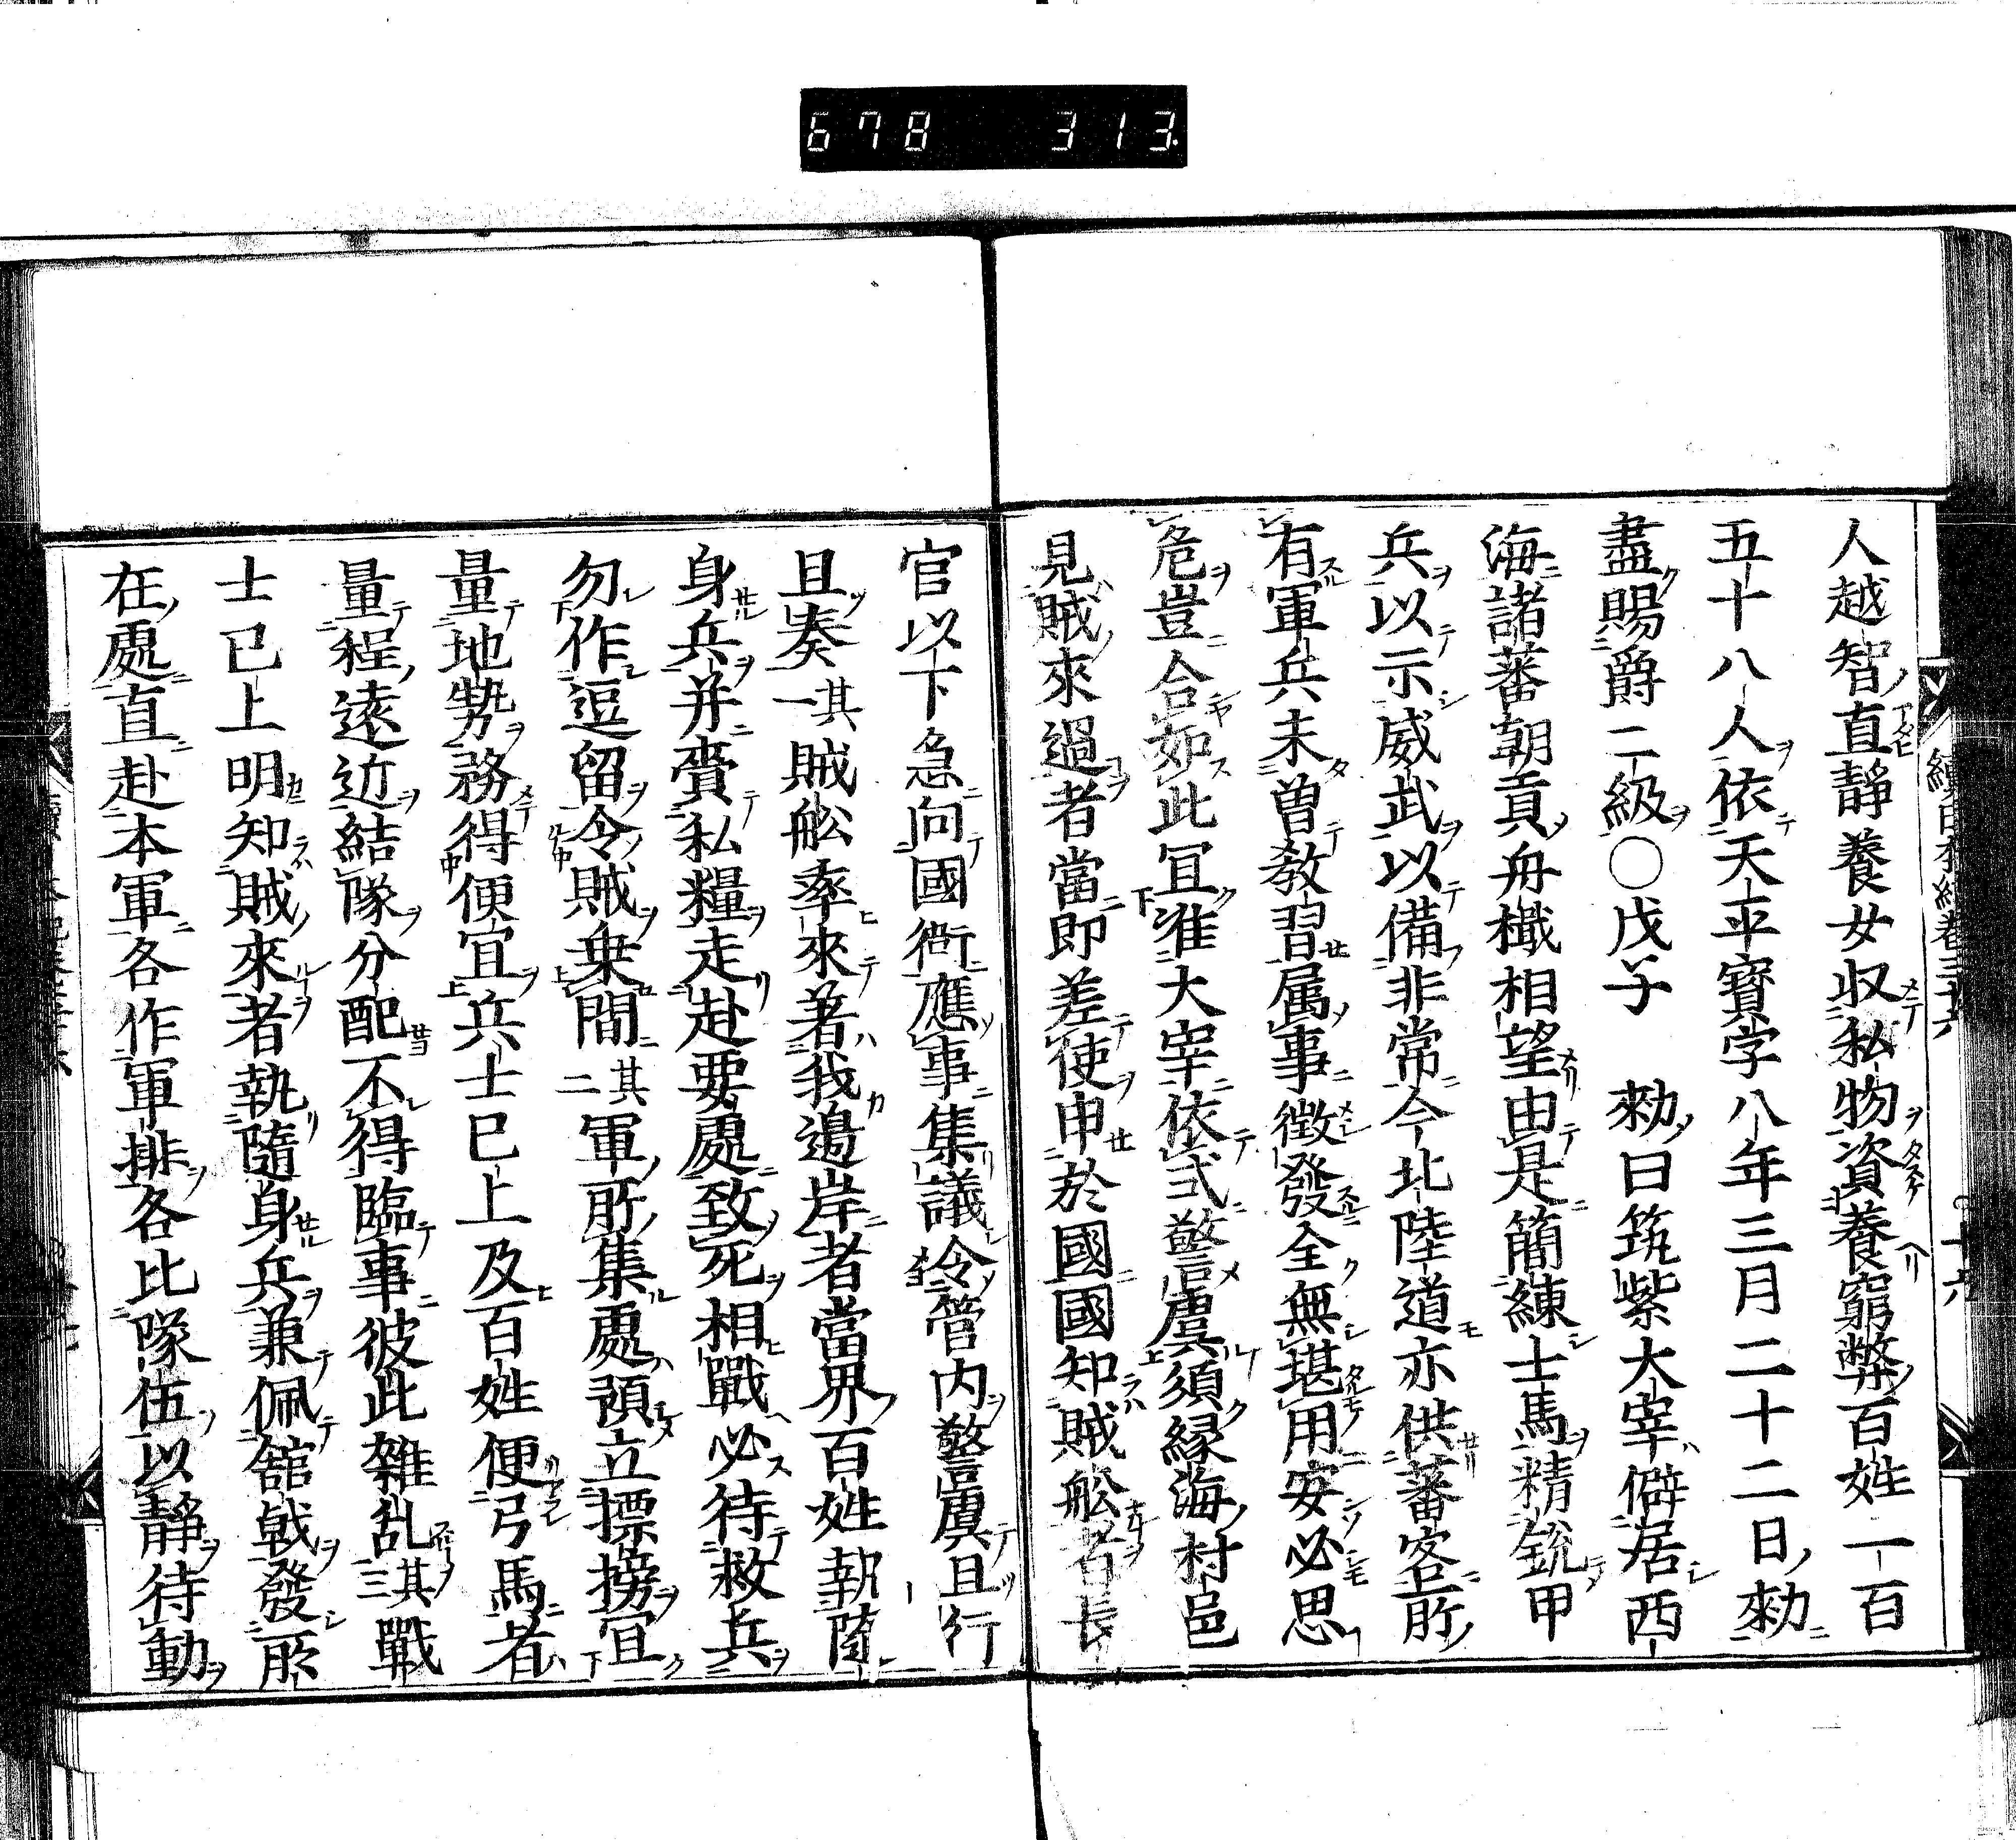 678 313.
人越智直靜養女収私物資養窮弊百姓一百
五十八人依天平寳字八年三月二十二日勅
盡賜爵二級○戊子 勅曰筑紫大宰僻居西
海諸蕃朝貢舟檝相望由是簡練士馬精銃甲
兵以示威武以備非常今北陸道亦供蕃客所
有軍兵未曽敎習属事徴發全無堪用安必思
危豈合如此冝准大宰依式警虞須縁海村邑
見賊來過者當即差使申於國國知賊舩者長
官以下急向國衙應事集議令管内警虞且行
且奏其一賊舩率來著我邉岸者當界百姓執隨
身兵并賷私糧走赴要處致死相戰必待救兵
勿作逗留令賊乗間其二軍所集處預立標榜冝
量地勢務得便宜兵士已上及百姓便弓馬者
量程遠近結隊分配不得臨事彼此雜乱其三戰
士已上明知賊來者執隨身兵兼佩舘戟發所
在處直赴本軍各作軍排各比隊伍以靜待動